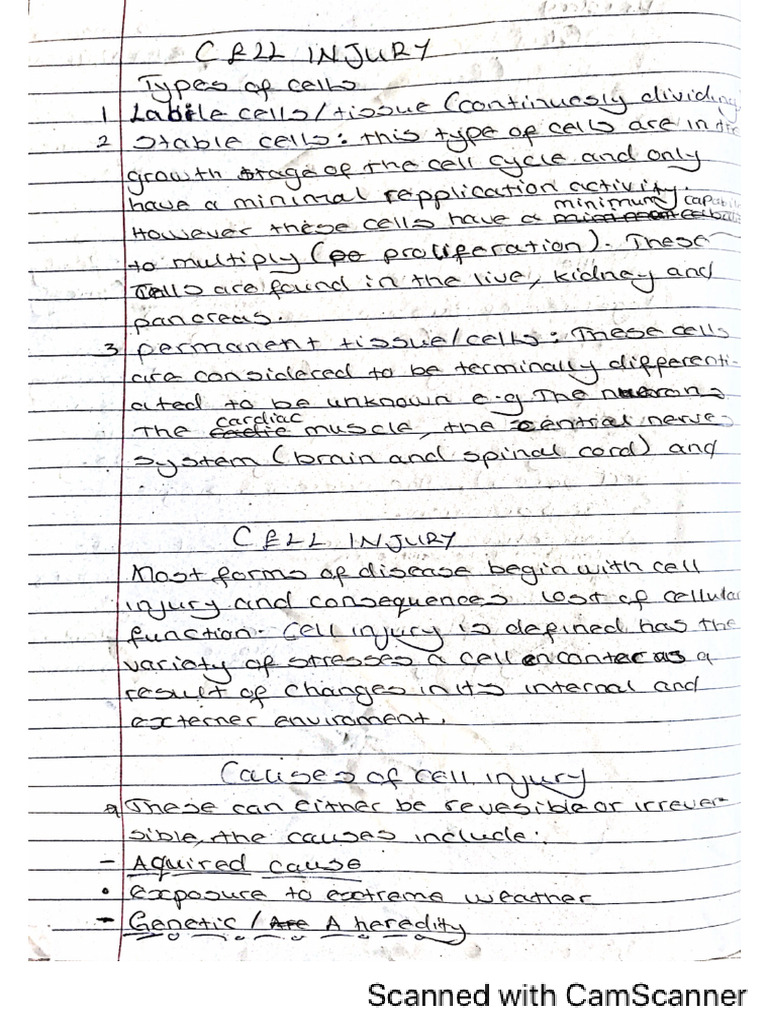 CELL INJURY
Types of cells
1 Labile cells/tissue (continuesly dividing
2 Stable cells: this type of cells are in the
growth stage of the cell cycle and only
have a minimal repplication activity.
However these cells have a minimum capabi
to multiply (proliferation). These
Cells are found in the live, kidney and
pancreas.
3 permanent tissue/cells: These cells
are considered to be terminally differenti-
ated to be unknown e.g The neurons
The cardiac muscle, the central nerve
system (brain and spinal cord) and
CELL INJURY
Most forms of disease begin with cell
injury and consequences lost of cellular
function. Cell injury is defined has the
variaty of stresses a cell encounter as a
result of changes in its internal and
externer enviroment.
Causes of cell injury
These can either be revesible or irrever-
sible, the causes include:
- Aquired cause
• exposure to extreme weather
- Genetic / A heredity
Scanned with CamScanner